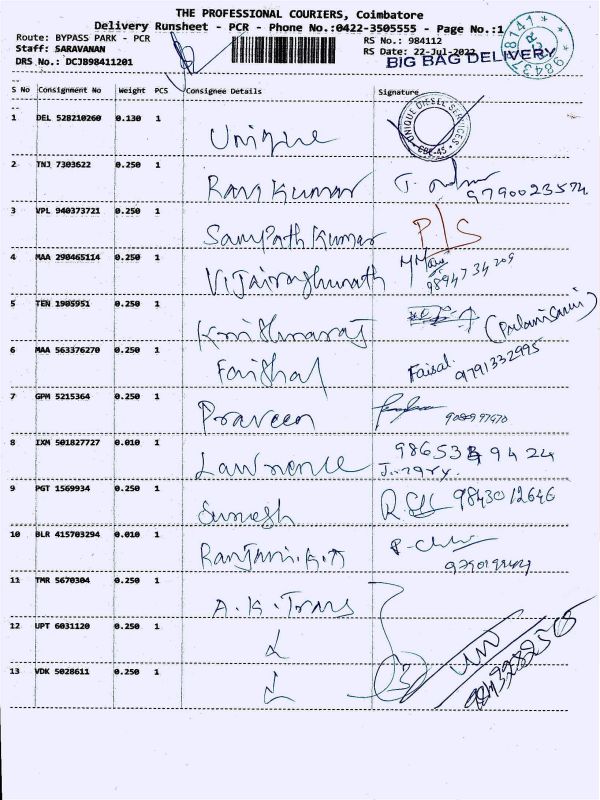 THE PROFESSIONAL COURIERS, Coimbatore
Delivery Runsheet - PCR - Phone No.:0422-3505555 - Page No.:1
Route: BYPASS PARK - PCR
RS No.: 984112
Staff: SARAVANAN
RS Date: 22-Jul-2022
DRS No.: DCJB98411201
BIG BAG DELIVERY
S No Consignment No Weight PCS Consignee Details Signature
1 DEL 528210260 0.130 1 Unique UNIQUE DIESEL SERVICES CBE-45
2 TNJ 7303622 0.250 1 Ravi Kumar 9790023574
3 VPL 940373721 0.250 1 Sampath Kumar P/S
4 MAA 290465114 0.250 1 Vijairaghunath 9894734209
5 TEN 1905951 0.250 1 Krishnaraj (Palanisami)
6 MAA 563376270 0.250 1 Faishal Faisal. 9791332995
7 GPM 5215364 0.250 1 Praveen
8 IXM 501827727 0.010 1 Lawrence
9 PGT 1569934 0.250 1 Suresh 9843012646
10 BLR 415703294 0.010 1 Ranjani.K.A
11 TMR 5670304 0.250 1 A.K.Trans
12 UPT 6031120 0.250 1
13 VDK 5028611 0.250 1